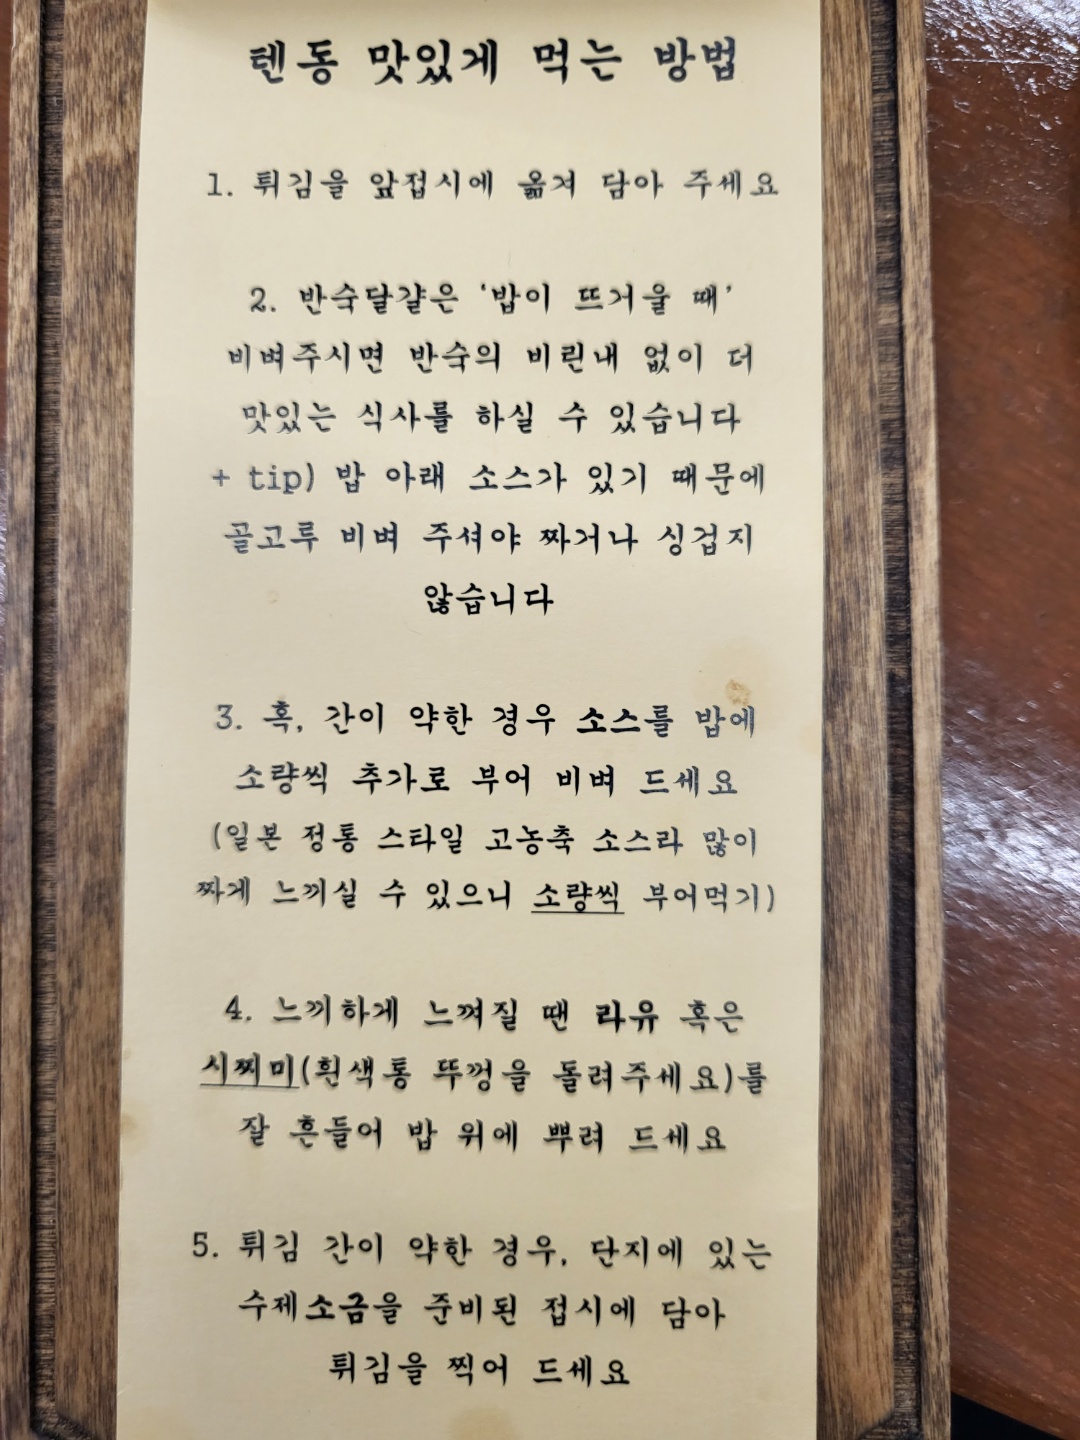 텐동 맛있게 먹는 방법
1. 튀김을 앞접시에 옮겨 담아 주세요
2. 반숙달걀은 '밥이 뜨거울 때'
비벼주시면 반숙의 비린내 없이 더
맛있는 식사를 하실 수 있습니다
+ tip) 밥 아래 소스가 있기 때문에
골고루 비벼 주셔야 짜거나 싱겁지
않습니다
3. 혹, 간이 약한 경우 소스를 밥에
소량씩 추가로 부어 비벼 드세요
(일본 정통 스타일 고농축 소스라 많이
짜게 느끼실 수 있으니 소량씩 부어먹기)
4. 느끼하게 느껴질 땐 라유 혹은
시찌미(흰색통 뚜껑을 돌려주세요)를
잘 흔들어 밥 위에 뿌려 드세요
5. 튀김 간이 약한 경우, 단지에 있는
수제소금을 준비된 접시에 담아
튀김을 찍어 드세요